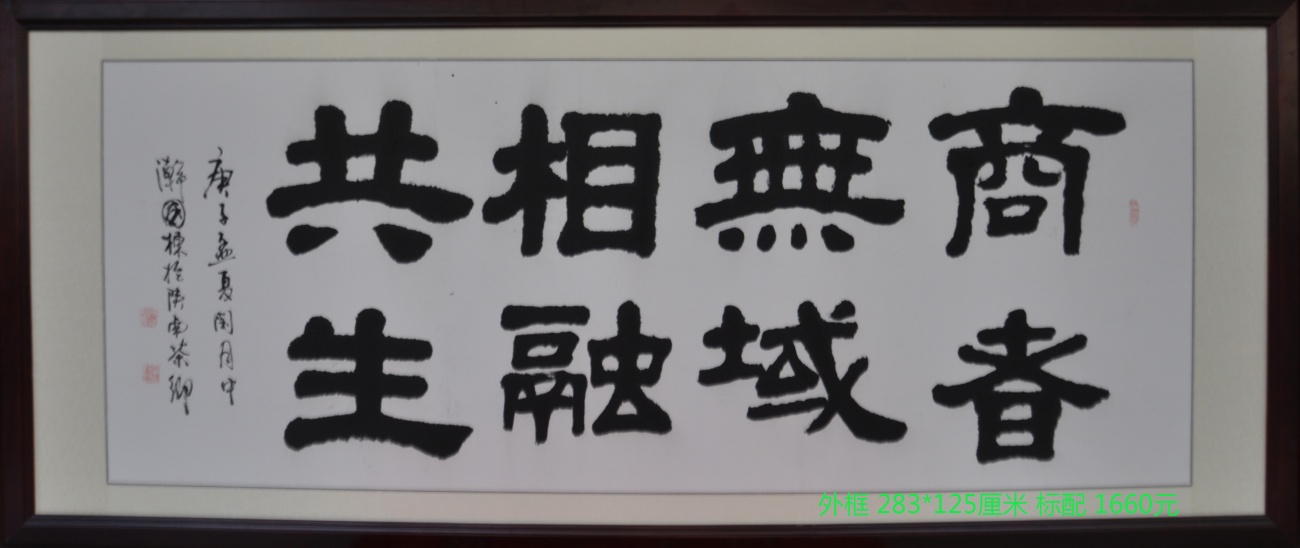 商者
無域
相融
共生
庚子孟夏閏月中
瀚國棟於陝南茶鄉
外框 283*125厘米 标配 1660元